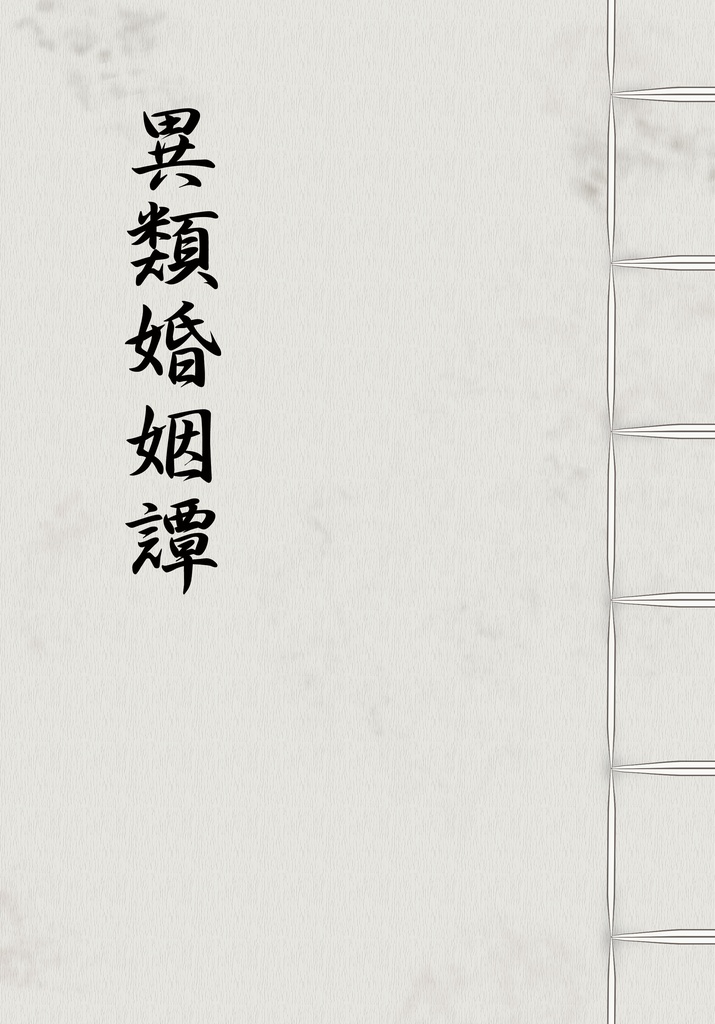 異類婚姻譚